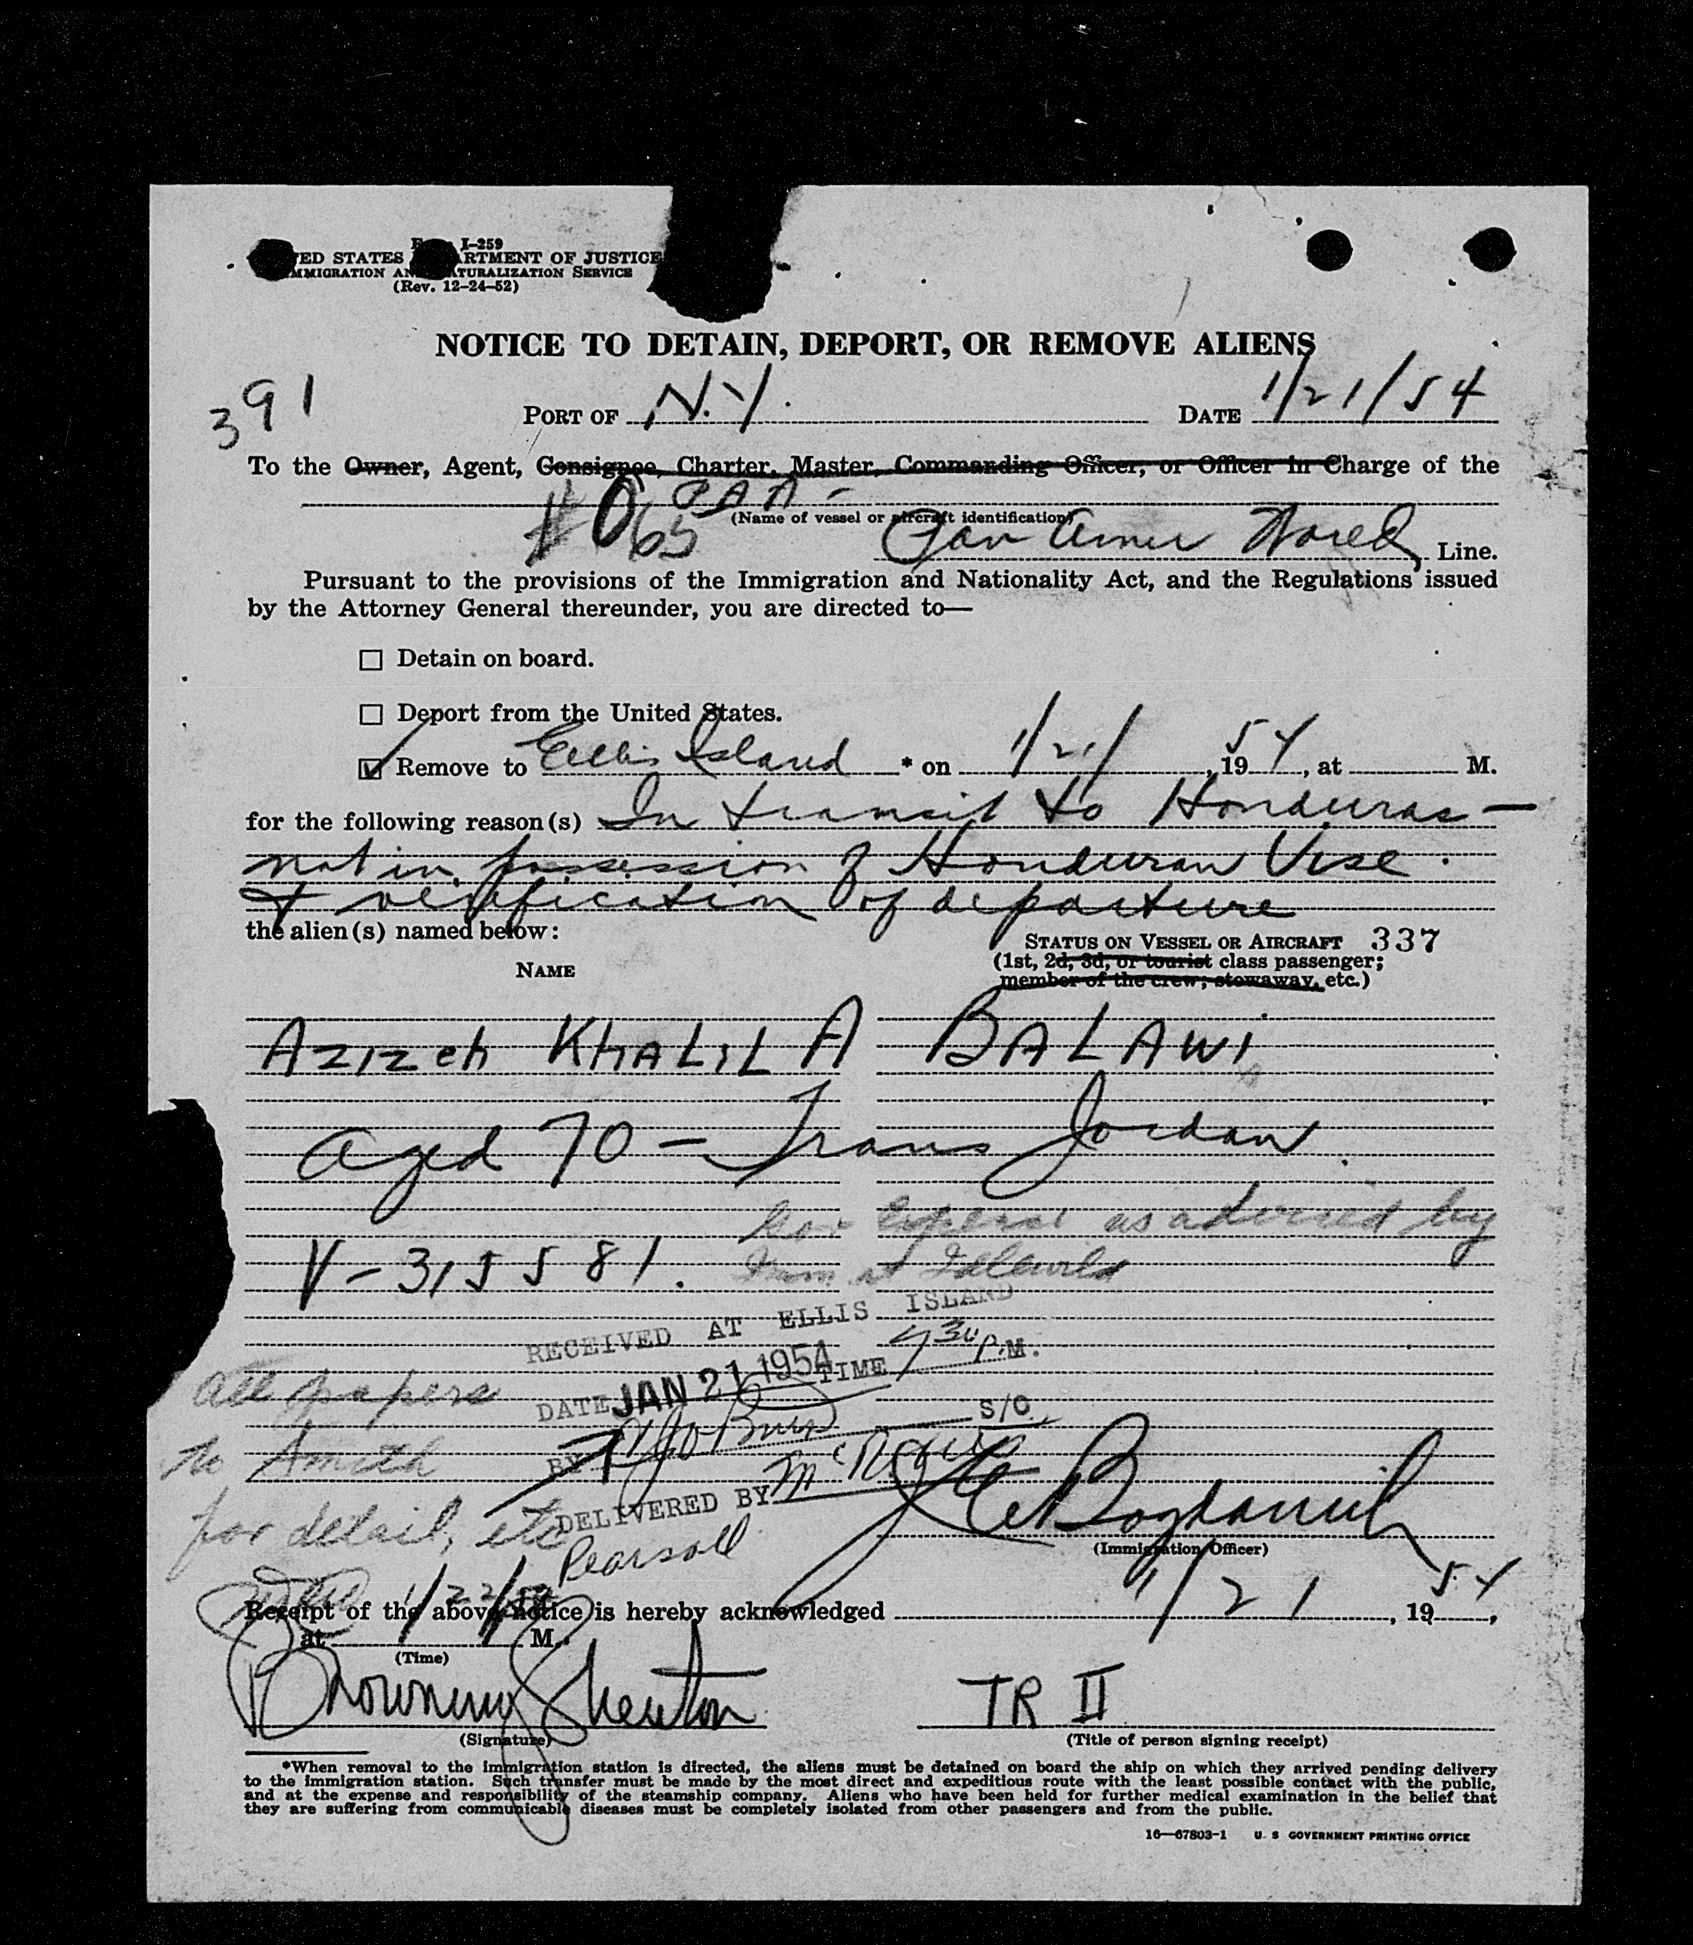 I-259
ED STATES RTMENT OF JUSTICE
MMIGRATION AN TURALIZATION SERVICE
(Rev. 12-24-52)
NOTICE TO DETAIN, DEPORT, OR REMOVE ALIENS
391
PORT OF N.Y. DATE 1/21/54
To the Owner, Agent, Consignee, Charter, Master, Commanding Officer, or Officer in Charge of the
PAA -
(Name of vessel or aircraft identification)
65
Pan Amer World Line.
Pursuant to the provisions of the Immigration and Nationality Act, and the Regulations issued
by the Attorney General thereunder, you are directed to—
☐ Detain on board.
☐ Deport from the United States.
☑ Remove to Ellis Island * on 1/21/, 1954, at M.
for the following reason(s) In transit to Honduras —
not in possession of Honduran Vise.
& verification of departure
the alien(s) named below:
STATUS ON VESSEL OR AIRCRAFT 337
NAME
(1st, 2d, 3d, or tourist class passenger;
member of the crew; stowaway, etc.)
AZIZEH KHALIL A BALAWI
aged 70 - Trans Jordan.
Gov expense as advised by
at Idlewild
V-315581.
RECEIVED AT ELLIS ISLAND
DATE JAN 21 1954 TIME 7 30 P.M.
S/O
BY
DELIVERED BY
Pearsall
All papers
to Smith
for detail, etc
(Immigration Officer)
1/22/54
Receipt of the above notice is hereby acknowledged 1/21, 1954,
at M.
(Time)
Browning Shenton
TR II
(Signature)
(Title of person signing receipt)
*When removal to the immigration station is directed, the aliens must be detained on board the ship on which they arrived pending delivery
to the immigration station. Such transfer must be made by the most direct and expeditious route with the least possible contact with the public,
and at the expense and responsibility of the steamship company. Aliens who have been held for further medical examination in the belief that
they are suffering from communicable diseases must be completely isolated from other passengers and from the public.
16—67803-1 U. S GOVERNMENT PRINTING OFFICE